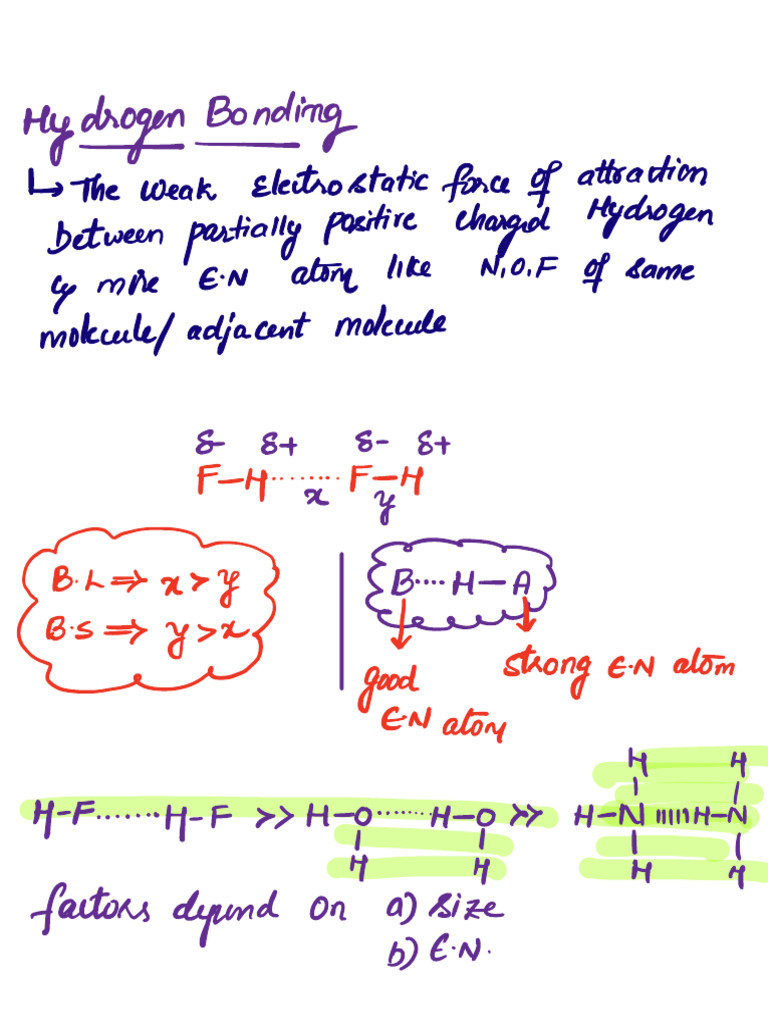 Hydrogen Bonding
↳ The weak Electrostatic force of attraction
between partially positive charged Hydrogen
& more E.N atom like N,O,F of same
molecule/adjacent molecule
δ- δ+ δ- δ+
F-H........F-H
x y
B.L ⇒ x > y
B.S ⇒ y > x
B.... H-A
good
E.N atom
strong E.N atom
H H
H-F......H-F >> H-O.......H-O >> H-N |||||H-N
H H H H
factors depend on a) size
b) E.N.